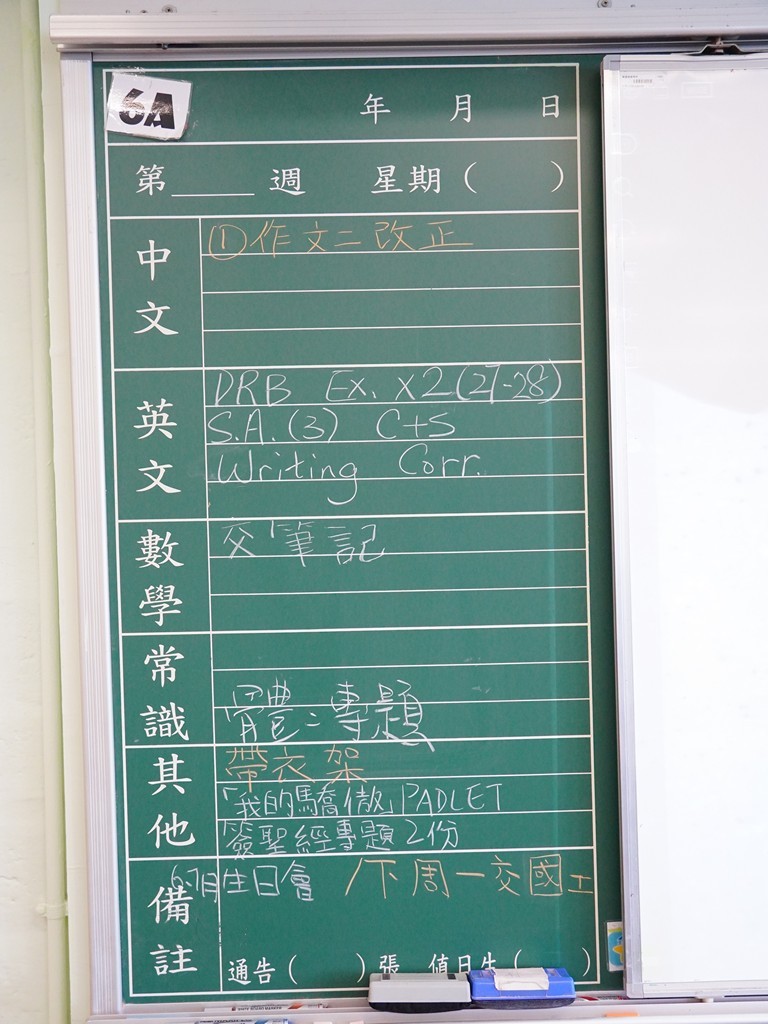 6A
年 月 日
第____週 星期( )
中文
①作文二改正
英文
DRB Ex. x2(27-28)
S.A.(3) C+S
Writing Corr.
數學
交筆記
常識
體:專題
其他
帶衣架
「我的驕傲」PADLET
簽聖經專題2份
備註
6-7月生日會 /下周一交國工
通告( )張 值日生( )